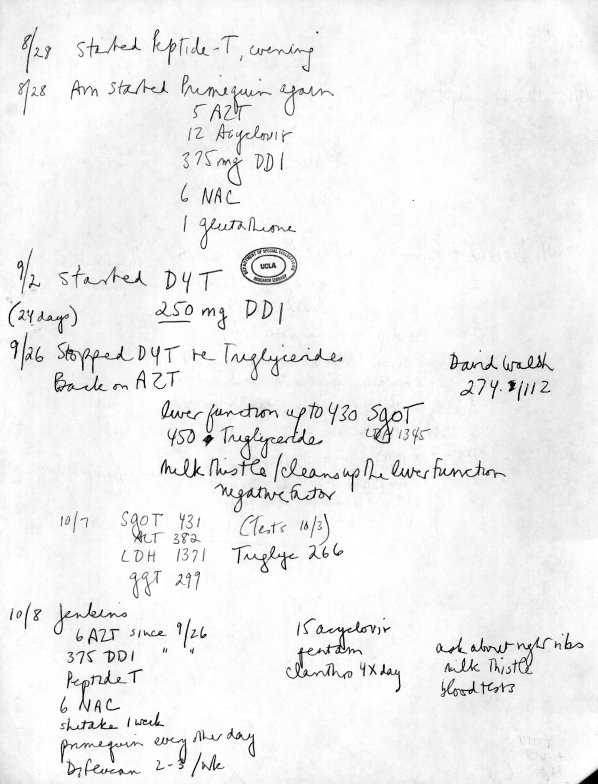 8/28 Started Peptide-T, evening
8/28 Am started Primequin again
5 AZT
12 Acyclovir
375mg DDI
6 NAC
1 glutathione
DEPARTMENT OF SPECIAL COLLECTIONS
UCLA
RESEARCH LIBRARY
9/2 Started D4T
(24 days) 250 mg DDI
9/26 Stopped D4T re Triglycerides
Back on AZT
David Walsh
274.1112
liver function up to 430 SgOT
450 Triglycerides LDH 1345
milk thistle / cleans up the liver function
negative factor
10/7 SgOT 431 (Tests 10/3)
ALT 382
LDH 1371 Triglyc 266
ggt 299
10/8 Jenkins
6 AZT since 9/26
375 DDI " "
Peptide T
6 NAC
shetake 1 week
primequin every other day
Diflucan 2-3 /wk
15 acyclovir
pentam
clanthro 4x day
ask about right ribs
milk thistle
blood tests